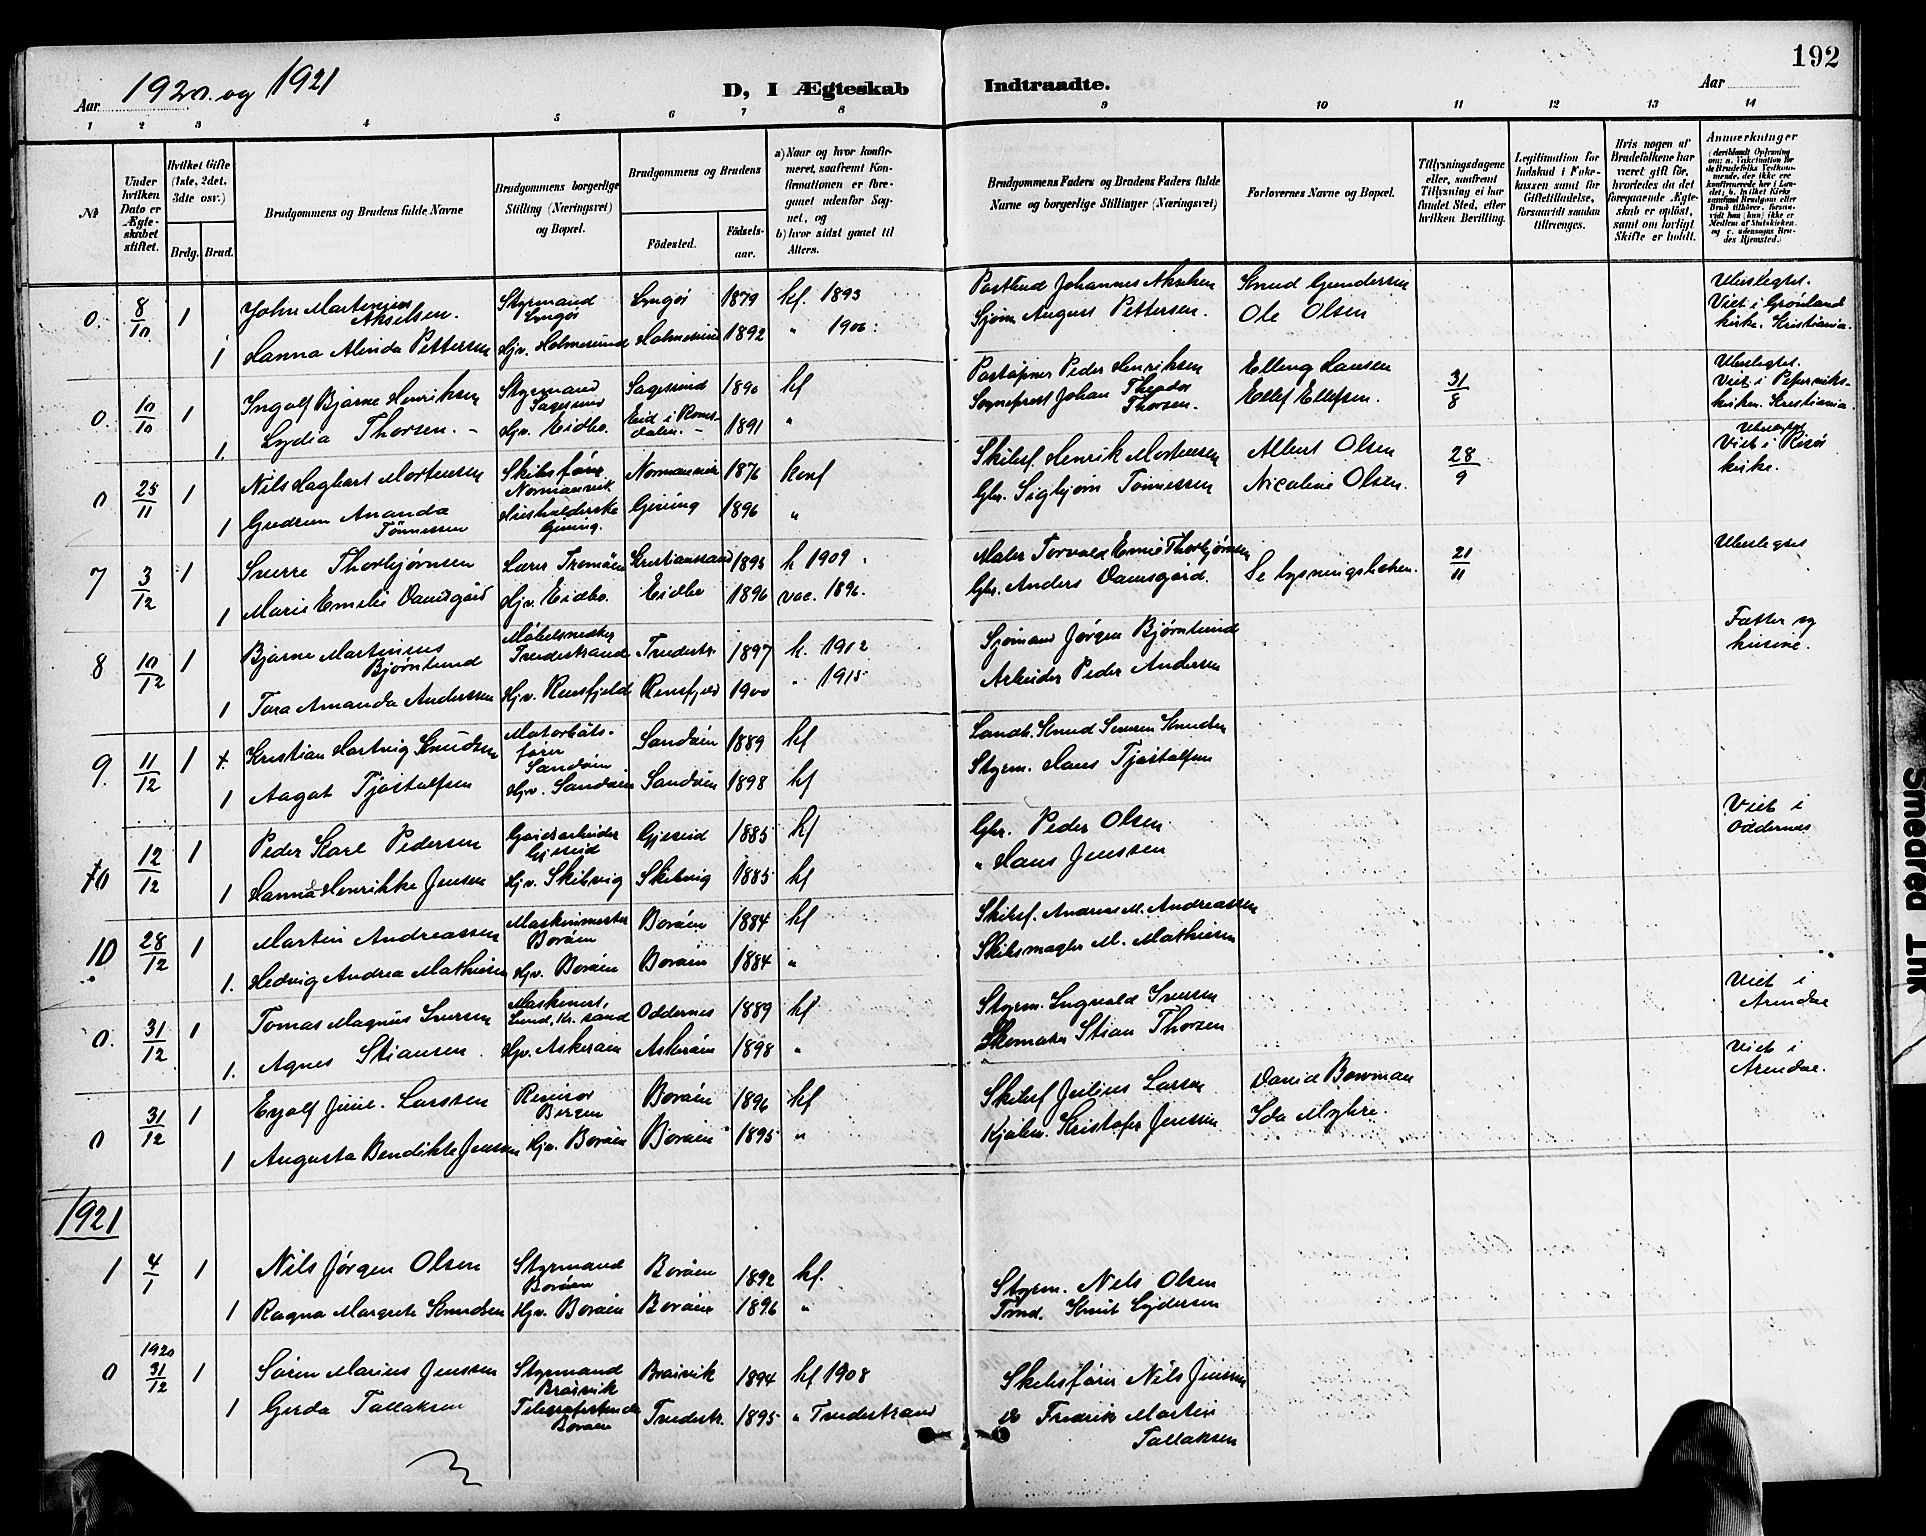 Aar 1920 og 1921
D, I Ægteskab Indtraadte.
Aar
192
1 2 3 4 5 6 7 8 9 10 11 12 13 14
No
Under hvilken Dato er Ægteskabet stiftet.
Hvilket Gifte (1ste, 2det, 3dte osv.)
Brdg. Brud.
Brudgommens og Brudens fulde Navne
Brudgommens borgerlige Stilling (Næringsvei) og Bopæl.
Brudgommens og Brudens
Fødested.
Fødselsaar.
a) Naar og hvor konfirmeret, saafremt Konfirmationen er foregaaet udenfor Sognet, og
b) hvor sidst gaaet til Alters.
Brudgommens Faders og Brudens Faders fulde Navne og borgerlige Stillinger (Næringsvei)
Forlovernes Navne og Bopæl.
Tillysningsdagene eller, saafremt Tillysning ei har fundet Sted, efter hvilken Bevilling.
Legitimation for Indskud i Enkekassen samt for Giftetilladelse, forsaavidt saadan tiltrænges.
Hvis nogen af Brudefolkene har været gift før, hvorledes da det foregaaende Ægteskab er opløst, samt om lovligt Skifte er holdt.
Anmerkninger
0. 8/10 1 John Martinius Akselsen. Styrmand Lyngör Lyngör 1879 kf. 1893 Johannes Akselsen Knud Gundersen Ubeslegtet. Viet i Grönland kirke. Kristiania.
1 Hanna Alvida Pettersen Hjv. Holmesund Holmesund 1892 " 1906 Sjöm. August Pettersen. Ole Olsen
0. 10/10 1 Ingolf Bjarne Henriksen Styrmand Sagesund Sagesund 1890 kf Postaapner Peder Henriksen Elling Hansen 31/8 Ubeslegtet. Viet i kirken. Kristiania.
1. Lydia Thorsen. Hjv. Eidbo. Eid i Romsdalen. 1891 " Sogneprest Johan Theodor Thorsen. Ellef Ellefsen.
0 25/11 1 Nils Hagbart Mortensen Skibsförer Normannvik Normannvik 1876 konf Skibsf. Henrik Mortensen Albert Olsen 28/9 Ubeslegtet Viet i Risör kirke.
1 Gudrun Ananda Tönnessen Husholderske Gjeving. Gjeving 1896 " Gbr. Sigbjörn Tönnessen Nicoline Olsen.
7 3/12 1 Sverre Thorbjørnsen Lærer Tromöen Kristianssand 1895 k 1909 Maler Torvald Emil Thorbjørnsen Se lysningsboken. 21/11 Ubeslegtet
1 Marie Emelie Damsgård Hjv. Eidbo. Eidbo 1896 vac. 1896. Gbr. Anders Damsgård.
8 10/12 1 Bjarne Martinius Bjørnlund Möbelsnedker Tvedestrand Tvedestr. 1897 k. 1912 Sjömand Jørgen Bjørnlund Fætter og kusine.
1 Tora Amanda Anderssen Hjv. Rensfjeld Rensfjeld 1900 " 1915 Arbeider Peder Andersen
9. 11/12 1 Kristian Hartvig Knudsen Motorbåtsförer Sandöin Sandöin 1889 kf Landh. Knud Knudsen
1 Aagot Tjöstolfsen Hjv. Sandöin Sandöin 1898 kf Styrm. Hans Tjöstolfsen
10 12/12 1 Peder Karl Pedersen Gaardarbeider Gjeseid Gjeseid 1885 kf Gbr. Peder Olsen Viet i Oddernes
1 Hanna Henrikke Jensen Hjv. Skibvig Skibvig 1885 kf " Hans Jenssen
10 28/12 1 Martin Andreassen Maskinmester Boröen Boröen 1884 kf Skibsf. Andreas M. Andreassen
1. Hedvig Andrea Mathiesen Hjv. Boröen Boröen 1884 " Skibsmægler M. Mathiesen
0. 31/12 1 Tomas Magnus Iversen Maskinist, Lund, Kr. sand Oddernes 1889 kf Styrm. Ingvald Iversen Viet i Arendal
1. Agnes Stiansen. Hjv. Askeröen Askeröen 1898 " Skomaker Stian Thorsen
0 31/12 1 Eyolf Juul. Larssen Revisor Bergen Boröen 1896 kf Skibsf Julius Larsen David Bowman Viet i Arendal.
1 Augusta Bendikte Jenssen Hjv. Boröen Boröen 1895 " Kjöbm. Kristofer Jenssen Ida Myhre.
1921
1 4/1 1 Nils Jørgen Olsen Styrmand Boröen Boröen 1892 kf. Styrm. Nils Olsen
1 Ragna Margrete Knudsen Hjv. Boröen Boröen 1896 " Tömd. Knut
0 1920 31/12 1 Sören Marius Jenssen Styrmand Braavik Braavik 1894 kf 1908 Skibsförer Nils Jenssen
1 Gerda Tallaksen Boröen Tvedestr. 1895 " Tvedestrand do Fredrik Martin Tallaksen
Smedrød Ink